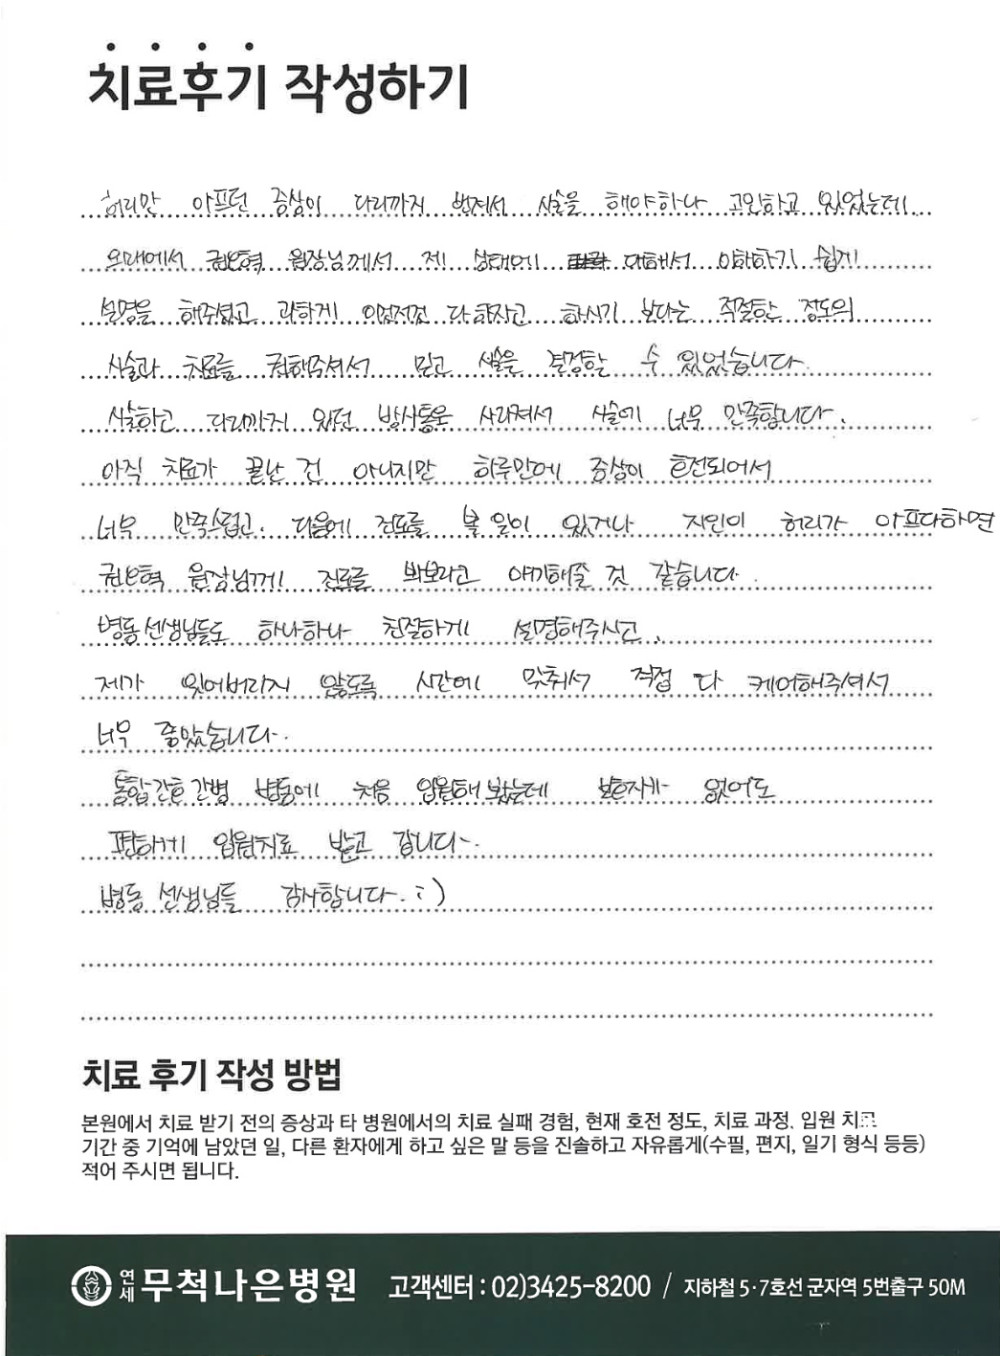 치료후기 작성하기
허리만 아프던 증상이 다리까지 번져서 시술을 해야하나 고민하고 있었는데
외래에서 권오혁 원장님께서 제 상태에 대해서 이해하기 쉽게
설명을 해주셨고 과하게 이것저것 다 하자고 하시기 보다는 적절한 정도의
시술과 치료를 권해주셔서 믿고 시술을 결정할 수 있었습니다.
시술하고 다리까지 있던 방사통은 사라져서 시술에 너무 만족합니다.
아직 치료가 끝난 건 아니지만 하루만에 증상이 호전되어서
너무 만족스럽고. 다음에 진료를 볼 일이 있거나 지인이 허리가 아프다하면
권오혁 원장님께 진료를 봐보라고 얘기해줄 것 같습니다.
병동 선생님들도 하나하나 친절하게 설명해주시고,
제가 잊어버리지 않도록 시간에 맞춰서 직접 다 케어해주셔서
너무 좋았습니다.
통합간호간병 병동에 처음 입원해 봤는데 보호자가 없어도
편하게 입원치료 받고 갑니다.
병동 선생님들 감사합니다. :)
치료 후기 작성 방법
본원에서 치료 받기 전의 증상과 타 병원에서의 치료 실패 경험, 현재 호전 정도, 치료 과정. 입원 치료
기간 중 기억에 남았던 일, 다른 환자에게 하고 싶은 말 등을 진솔하고 자유롭게(수필, 편지, 일기 형식 등등)
적어 주시면 됩니다.
연세무척나은병원 고객센터 : 02)3425-8200 / 지하철 5·7호선 군자역 5번출구 50M